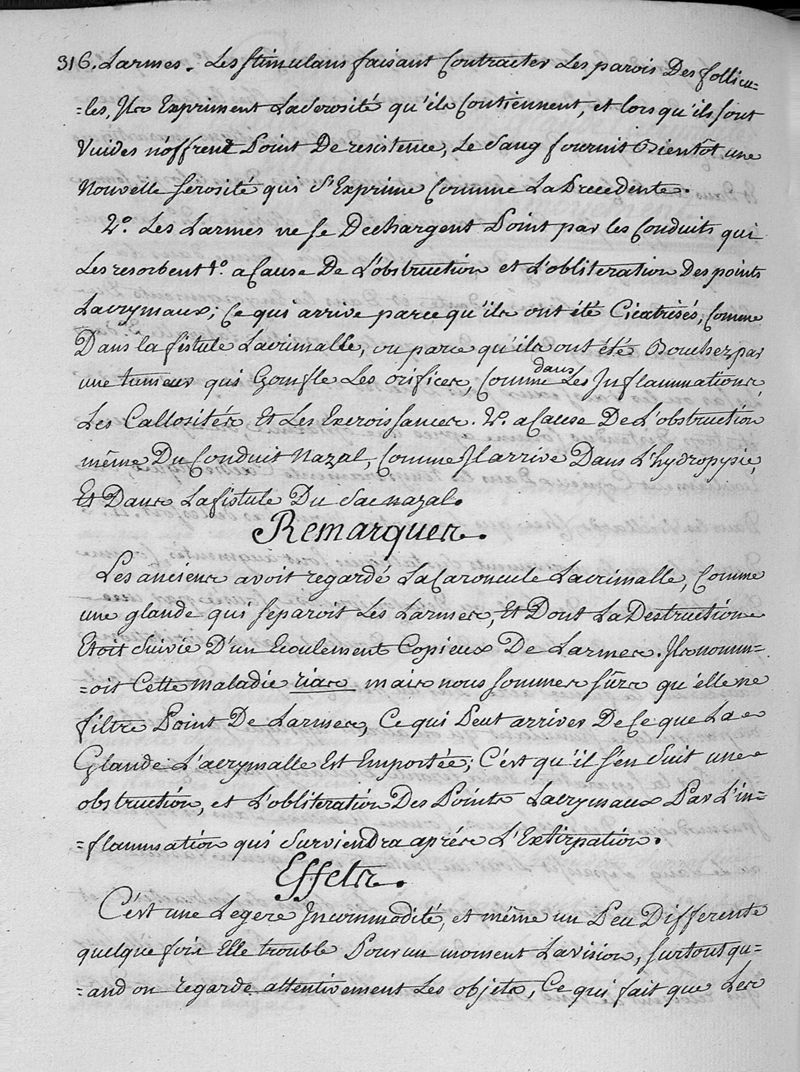 316. Larmes. Les stimulans faisant Contracter Les parois Des follicu=
=les, Ils Expriment La serosité qu'ils Contiennent, et lors qu'ils sont
Vuides n'offrent Point De resistence, Le Sang fournit Bientôt une
Nouvelle serosité qui s'Exprime Comme La Precedente.
2.º Les Larmes ne se Dechargent Point par les Conduits qui
Les resorbent 1.º a Cause De L'obstruction et L'obliteration Des points
Lacrymaux; Ce qui arrive parce qu'ils ont été Cicatrisés, Comme
Dans la fistule Lacrimalle, ou parce qu'ils ont été Bouchez par
une tumeur qui Gonfle Les orifices, Comme dans Les Inflammations,
Les Callosités Et Les Excroissances. 2.º a Cause De L'obstruction
même Du Conduit Nazal, Comme Il arrive Dans L'hydropysie,
Et Dans La fistule Du Sac nazal.
Remarques.
Les anciens avoit regardé La Caroncule Lacrimalle, Comme
une glande qui separoit Les Larmes, Et Dont La Destruction
Etoit Suivie D'un Ecoulement Copieux De Larmes. Ils nomm=
=oit Cette maladie rias mais nous sommes sûrs qu'elle ne
filtre Point De Larmes, Ce qui Peut arriver De Ce que La
Glande Lacrymalle Est Emportée; C'est qu'il s'en Suit une
obstruction, et L'obliteration Des Points Lacrymaux Par L'in=
=flammation qui Surviendra après L'Extirpation.
Effets.
C'est une Legere Incommodité, et même un Peu Differente
quelque fois Elle trouble Pour un moment La vision, surtout qu=
=and on regarde attentivement Les objets, Ce qui fait que Les